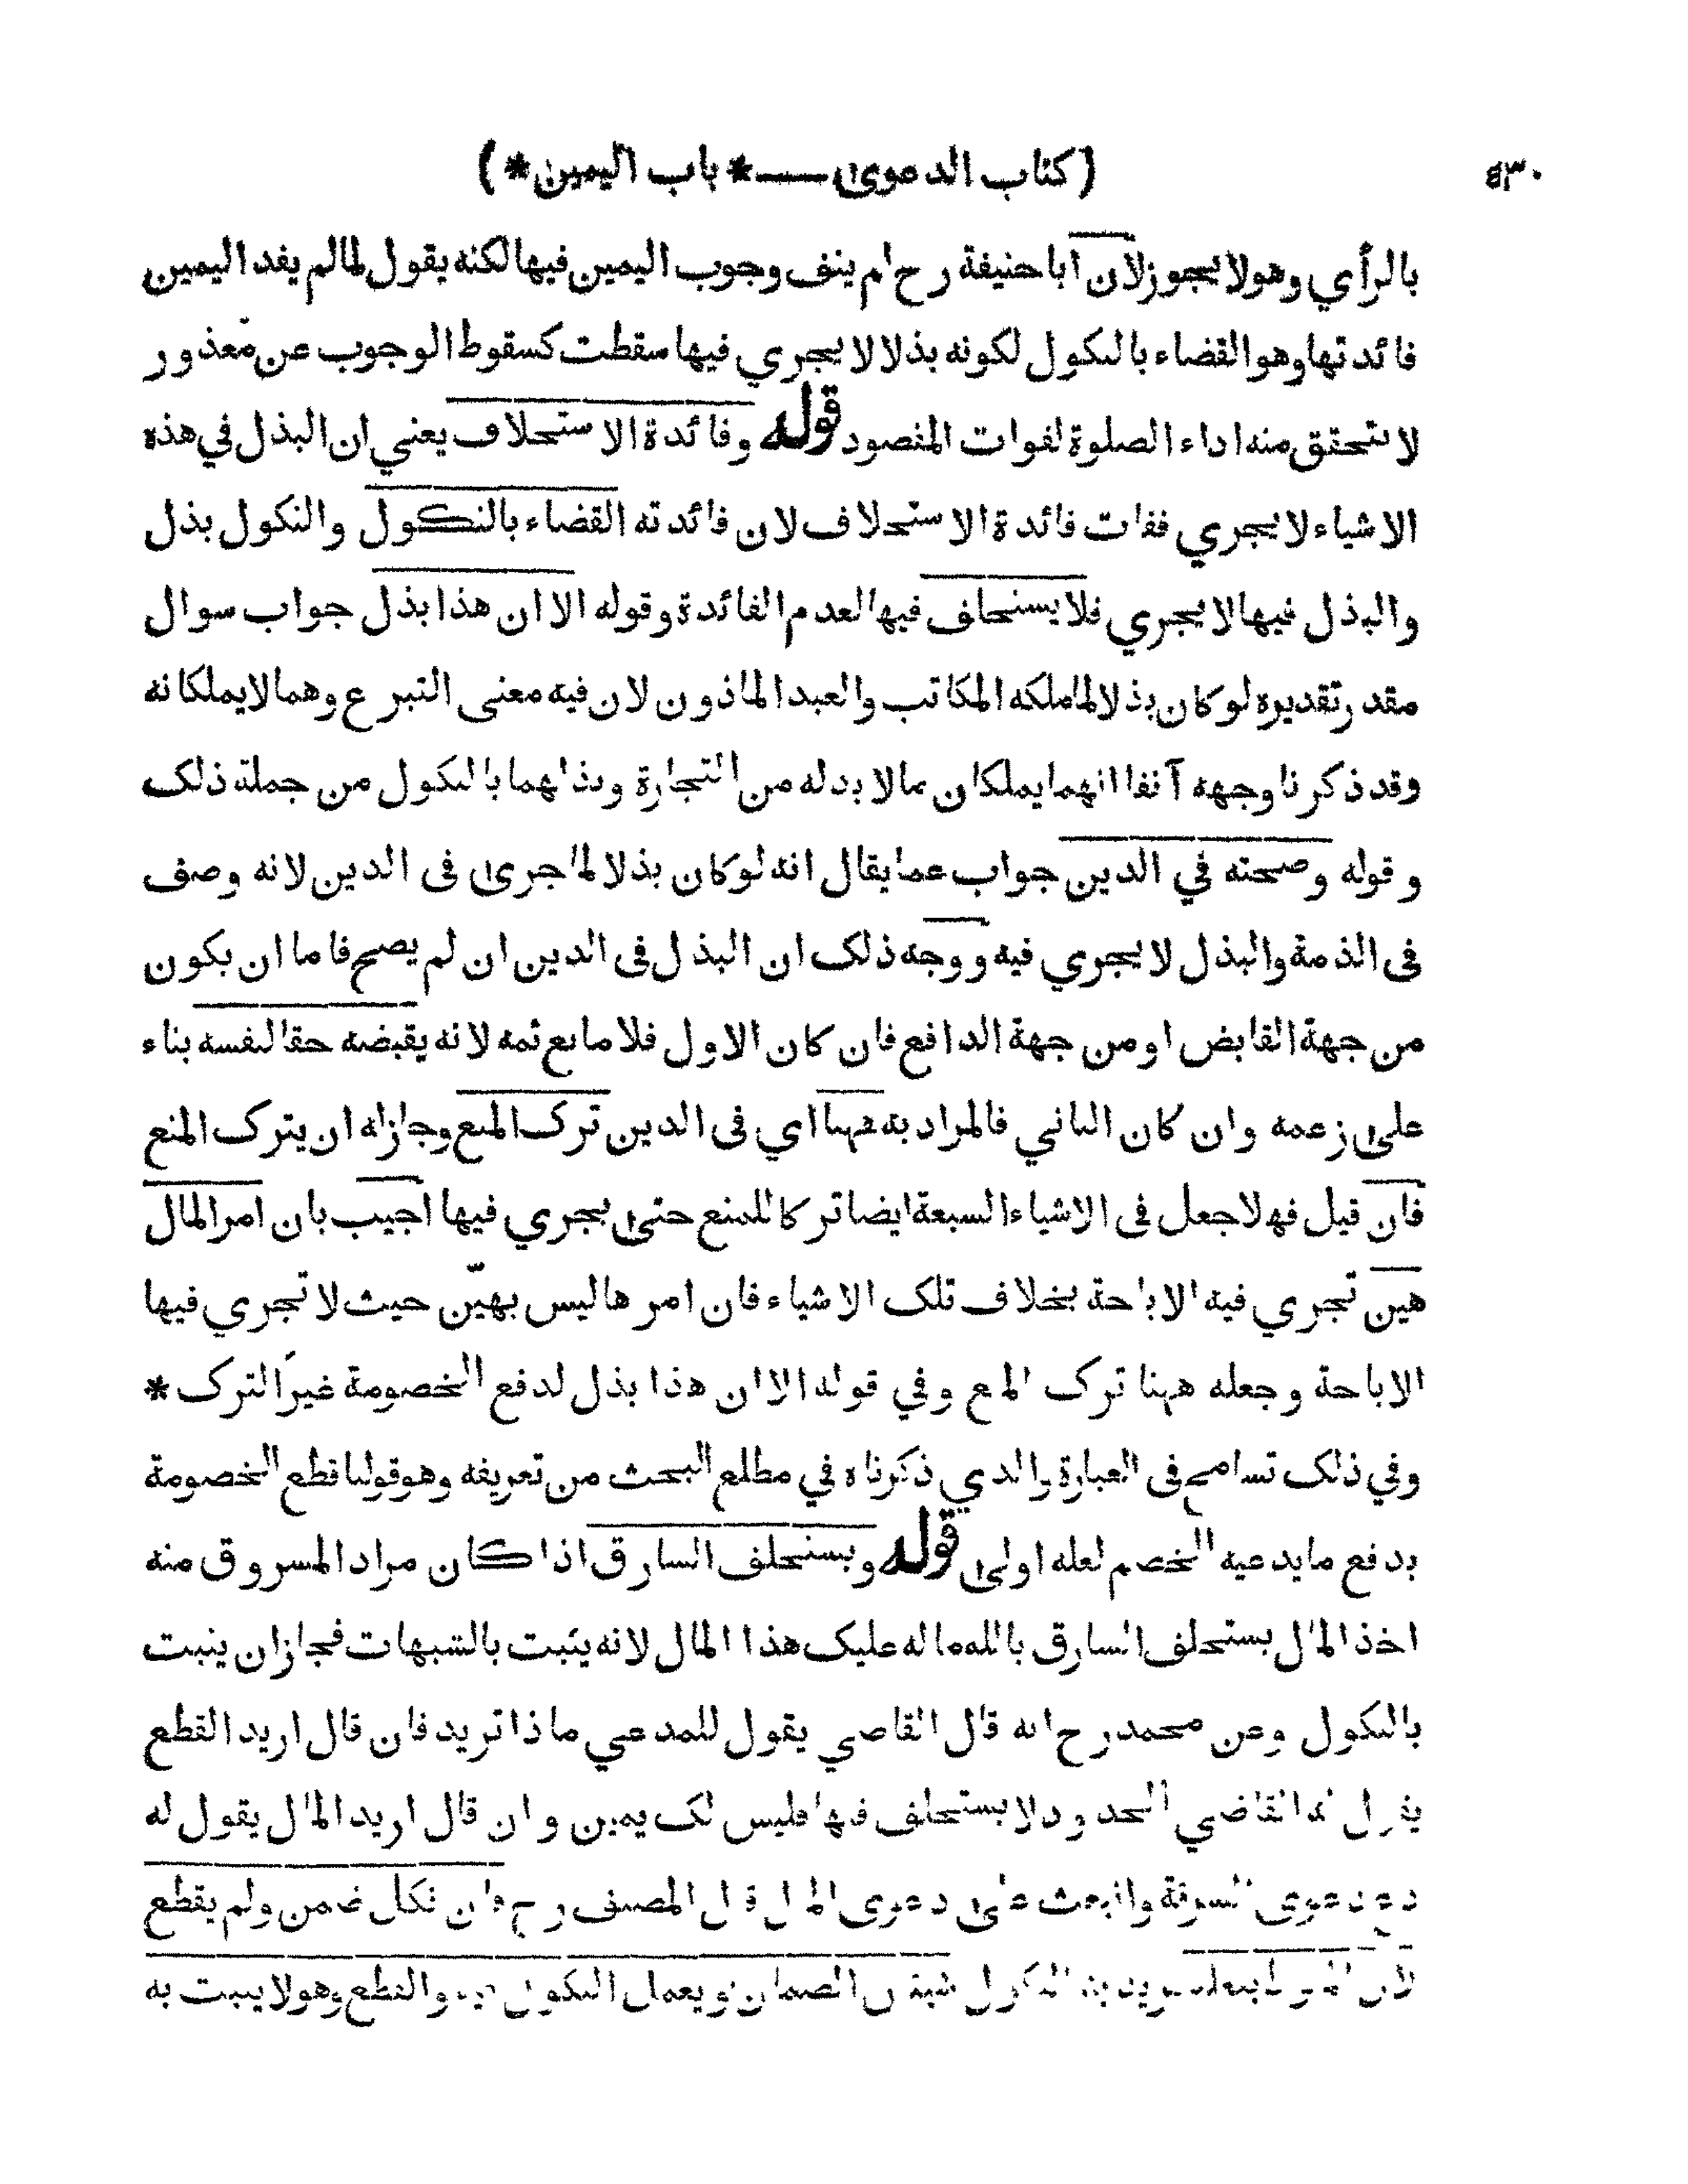 ٤٣٠
(كتاب الدعوى — * باب اليمين *)
بالرأي وهو لا يجوز لان ابا حنيفة رح لم ينف وجوب اليمين فيها لكنه يقول لما لم يفد اليمين
فائدتها وهو القضاء بالنكول لكونه بذلا لا يجري فيها سقطت كسقوط الوجوب عن معذور
لا يتحقق منه اداء الصلوة لفوات المقصود قوله وفائدة الاستحلاف يعني ان البذل في هذه
الاشياء لا يجري ففات فائدة الاستحلاف لان فائدته القضاء بالنكول والنكول بذل
والبذل فيها لا يجري فلا يستحلف فيها لعدم الفائدة وقوله الا ان هذا بذل جواب سوال
مقدر تقديره لو كان بذلا لما ملكه المكاتب والعبد الماذون لان فيه معنى التبرع وهما لا يملكانه
وقد ذكرنا وجهه آنفا انهما يملكان مالا بد له من التجارة وبذلهما بالنكول من جملة ذلك
وقوله وصحته في الدين جواب عما يقال انه لو كان بذلا لما جرى فى الدين لانه وصف
فى الذمة والبذل لا يجري فيه ووجه ذلك ان البذل فى الدين ان لم يصح فاما ان يكون
من جهة القابض او من جهة الدافع فان كان الاول فلا مانع ثمه لانه يقبضه حقا لنفسه بناء
على زعمه وان كان الثاني فالمراد به ههنا اي فى الدين ترك المنع وجاز له ان يترك المنع
فان قيل فهلا جعل فى الاشياء السبعة ايضا تركا للمنع حتى يجري فيها اجيب بان امر المال
هين تجري فيه الاباحة بخلاف تلك الاشياء فان امرها ليس بهيّن حيث لا تجري فيها
الاباحة وجعله ههنا ترك المنع وفي قوله الا ان هذا بذل لدفع الخصومة غير الترك *
وفي ذلك تسامح فى العبارة والذي ذكرناه في مطلع البحث من تعريفه وهو قولنا قطع الخصومة
بدفع ما يدعيه الخصم لعله اولى قوله ويستحلف السارق اذا كان مراد المسروق منه
اخذ المال يستحلف السارق بالله ما له عليك هذا المال لانه يثبت بالشبهات فجاز ان يثبت
بالنكول وعن محمد رح انه قال القاضي يقول للمدعي ماذا تريد فان قال اريد القطع
يقول له القاضي الحدود لا يستحلف فيها فليس لك يمين وان قال اريد المال يقول له
دع دعوى السرقة وانبعث على دعوى المال قال المصنف رح فان نكل ضمن ولم يقطع
لان المنوط بفعله الضمان ويعمل النكول والقطع وهو لا يثبت به